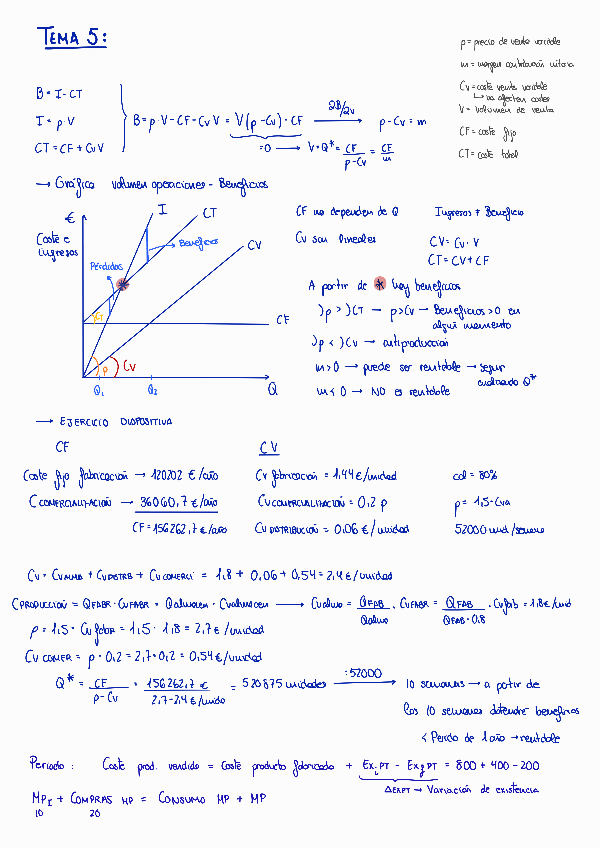 TEMA 5:
p = precio de venta variable
m = margen contribución unitario
Cv = coste venta variable
↳ no afectan costes
V = volumen de venta
CF = coste fijo
CT = coste total
B = I - CT
I = p · V
CT = CF + Cv V
B = p · V - CF - Cv V = V(p - Cv) - CF
∂B/∂v
p - Cv = m
=0 → V = Q* = CF/(p-Cv) = CF/m
→ Gráfica volumen operaciones - Beneficios
€
I
CT
CV
Coste e
ingresos
Beneficios
Pérdidas
CF
p
Cv
Q1
Q2
Q
CF no dependen de Q
Cv son lineales
Ingresos ≠ Beneficio
CV = Cv · V
CT = CV + CF
A partir de * hay beneficios
)p > )CT → p > Cv → Beneficios > 0 en
algún momento
)p < )Cv → antiproducción
m > 0 → puede ser rentable → según
m < 0 → NO es rentable
Q*
→ EJERCICIO DIAPOSITIVA
CF
CV
Coste fijo fabricación → 120202 €/año
C COMERCIALIZACIÓN → 36060,7 €/año
CF = 156262,7 €/año
Cv fabricación = 1,44 €/unidad
Cv COMERCIALIZACIÓN = 0,2 p
Cv DISTRIBUCIÓN = 0,06 €/unidad
cal = 80%
p = 1,5 · Cva
52000 unid/semana
Cv = Cv ALMA + Cv DISTRB + Cv COMERCI = 1,8 + 0,06 + 0,54 = 2,4 €/unidad
CPRODUCCIÓN = QFABR · CvFABR = Qalmacen · Cvalmacen → Cvalma = QFAB/Qalma · CvFABR = QFAB/(QFAB · 0,8) · Cvfab = 1,8 €/unid
p = 1,5 · Cvfabor = 1,5 · 1,8 = 2,7 €/unidad
Cv COMER = p · 0,2 = 2,7 · 0,2 = 0,54 €/unidad
Q* = CF/(p-Cv) = 156262,7 €/(2,7-2,4 €/unida) = 520875 unidades
:52000
10 semanas → a partir de
las 10 semanas obtendré beneficios
< Periodo de 1 año → rentable
Periodo: Coste prod. vendido = Coste producto fabricado + Ex₁PT - Ex₂PT = 800 + 400 - 200
ΔEXPT → Variación de existencia
MP I + COMPRAS MP = CONSUMO MP + MP
10 20